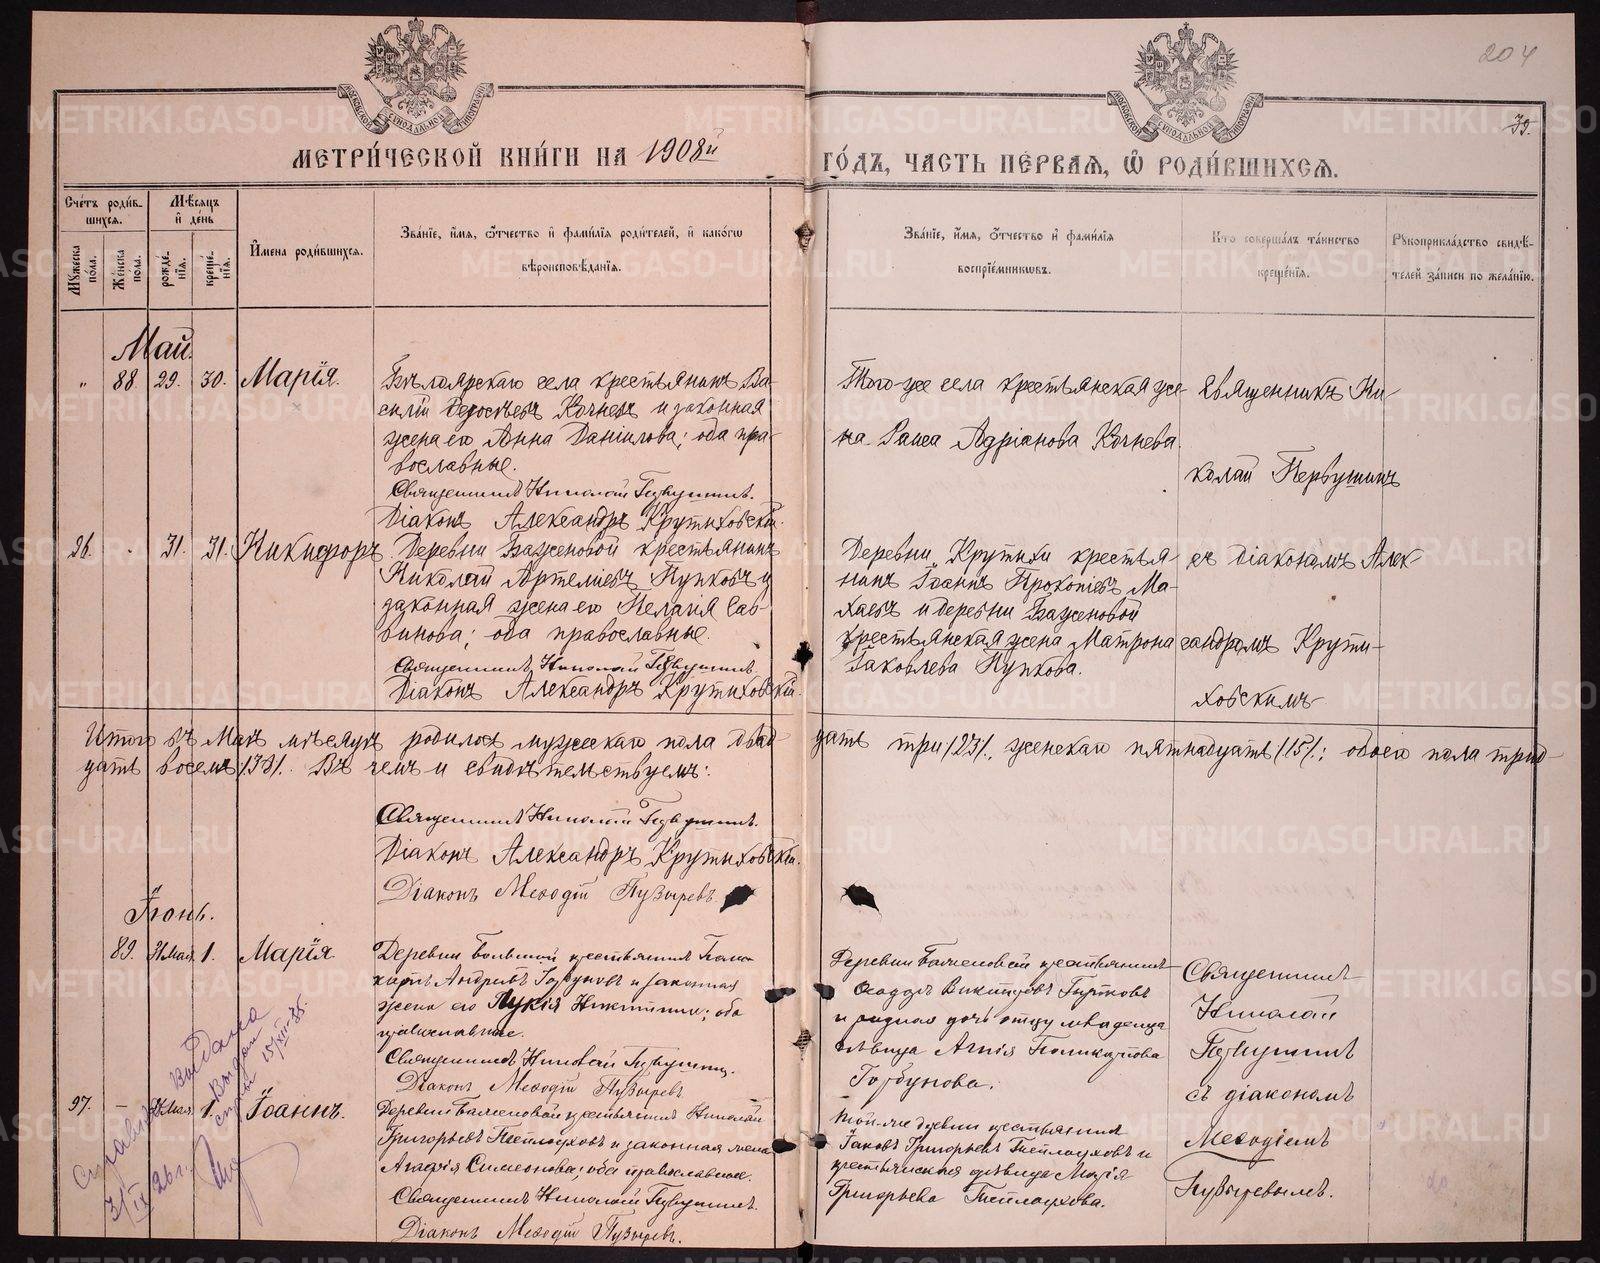 204
39.
МЕТРИ́ЧЕСКОЙ КНИ́ГИ НА 1908й ГО́ДЪ, ЧАСТЬ ПЕ́РВАЯ, Ѡ РОДИ́ВШИХСЯ.
Сче́тъ роди́в-
шихся.
Мѣ́сяцъ
и де́нь
Му́жеска по́ла.
Же́нска пола.
рожде́-
нїя.
креще́-
нїя.
И́мена роди́вшихся.
Зва́нїе, и́мя, ѻ́тчество и фами́лїя роди́телей, и како́гѡ
вѣроисповѣ́данїя.
Зва́нїе, и́мя, ѻ́тчество и фами́лїя
воспрїе́мниковъ.
Кто соверша́лъ та́инство
креще́нїя.
Рукоприкла́дство свидѣ́-
телей за́писи по жела́нїю.
Май.
„ 88. 29. 30. Марія.
Бѣлоярскаго села крестьянинъ Ва-
силій Кочневъ и законная
жена его Анна Даніилова; оба пра-
вославные.
Священникъ Николай Первушинъ.
Діаконъ Александръ Крутиховскій.
Того-же села крестьянская же-
на Раиса Адріанова Кочнева.
Священникъ Ни-
колай Первушинъ
26. 31. 31. Никифоръ.
Деревни Баженовой крестьянинъ
Николай Артеміевъ Пупковъ и
законная жена его Пелагія Сав-
винова; оба православные.
Священникъ Николай Первушинъ
Діаконъ Александръ Крутиховскій.
Деревни Крутихи крестья-
нинъ Іоаннъ Прокопіевъ Ма-
хаевъ и деревни Баженовой
крестьянская жена Матрона
Іаковлева Пупкова.
съ діакономъ Алек-
сандромъ Крути-
ховскимъ
Итого въ Маѣ мѣсяцѣ родилось мужескаго пола двад-
цать три /23/., женскаго пятнадцать /15/.; обоего пола трид-
цать восемь /38/. Въ чемъ и свидѣтельствуемъ:
Священникъ Николай Первушинъ.
Діаконъ Александръ Крутиховскій.
Діаконъ Меѳодій Пузыревъ
Іюнь.
89. 31 Мая. 1. Марія
Деревни Большой крестьянинъ
Андреевъ Горбуновъ и законная
жена его Лукія Никитина; оба
православные.
Священникъ Николай Первушинъ.
Діаконъ Меѳодій Пузыревъ
Деревни Баженовой крестьянинъ
и родная дочь отцу младенца
дѣвица Агнія Поликарпова
Горбунова.
Священникъ
Николай
Первушинъ
съ діакономъ
Меѳодіемъ
Пузыревымъ.
97. – Мая. 1. Іоаннъ.
Деревни Баженовой крестьянинъ Николай
Григорьевъ Теплоуховъ и законная жена
Агафія Симеонова; оба православные.
Священникъ Николай Первушинъ.
Діаконъ Меѳодій Пузыревъ.
Той-же деревни крестьянинъ
Іаковъ Григорьевъ Теплоуховъ и
крестьянская дѣвица Марія
Григорьева Теплоухова.
выдана
3/IX 26 г.
15/XII-85.
METRIKI.GASO-URAL.RU